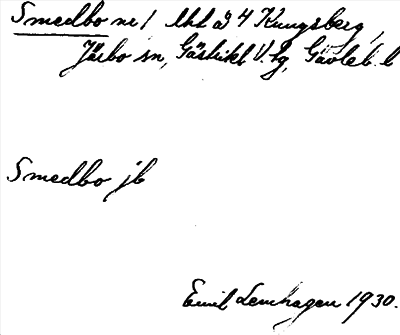 Smedbo nr 1 lht å 4 Kungsberg,
Järbo sn, Gästrikl V. tg, Gävleb. l
Smedbo jb
Emil Lenhagen 1930.